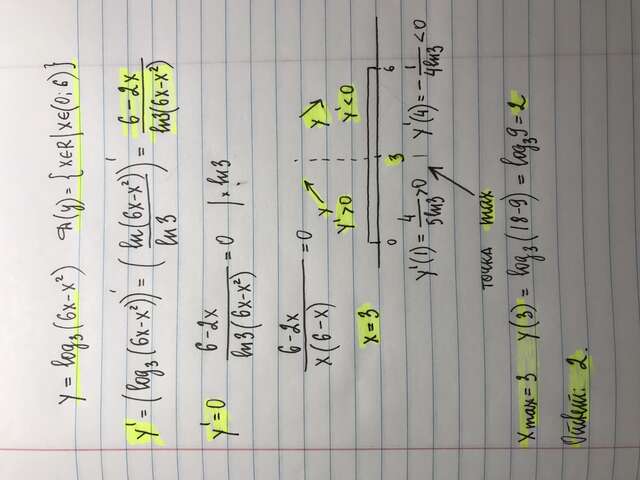 y = log₃(6x-x²) D(y) = {x∈R | x∈(0; 6)}
y' = (log₃(6x-x²))' = (ln(6x-x²)/ln3)' = (6-2x)/(ln3(6x-x²))
y'=0 (6-2x)/(ln3(6x-x²)) = 0 | × ln3
(6-2x)/(x(6-x)) = 0
y ↗ y ↘
y'>0 y'<0
x = 3
0 3 6
y'(1) = 4/(5ln3) >0 y'(4) = -1/(4ln3) <0
точка max
xmax = 3 y(3) = log₃(18-9) = log₃9 = 2
Ответ: 2.